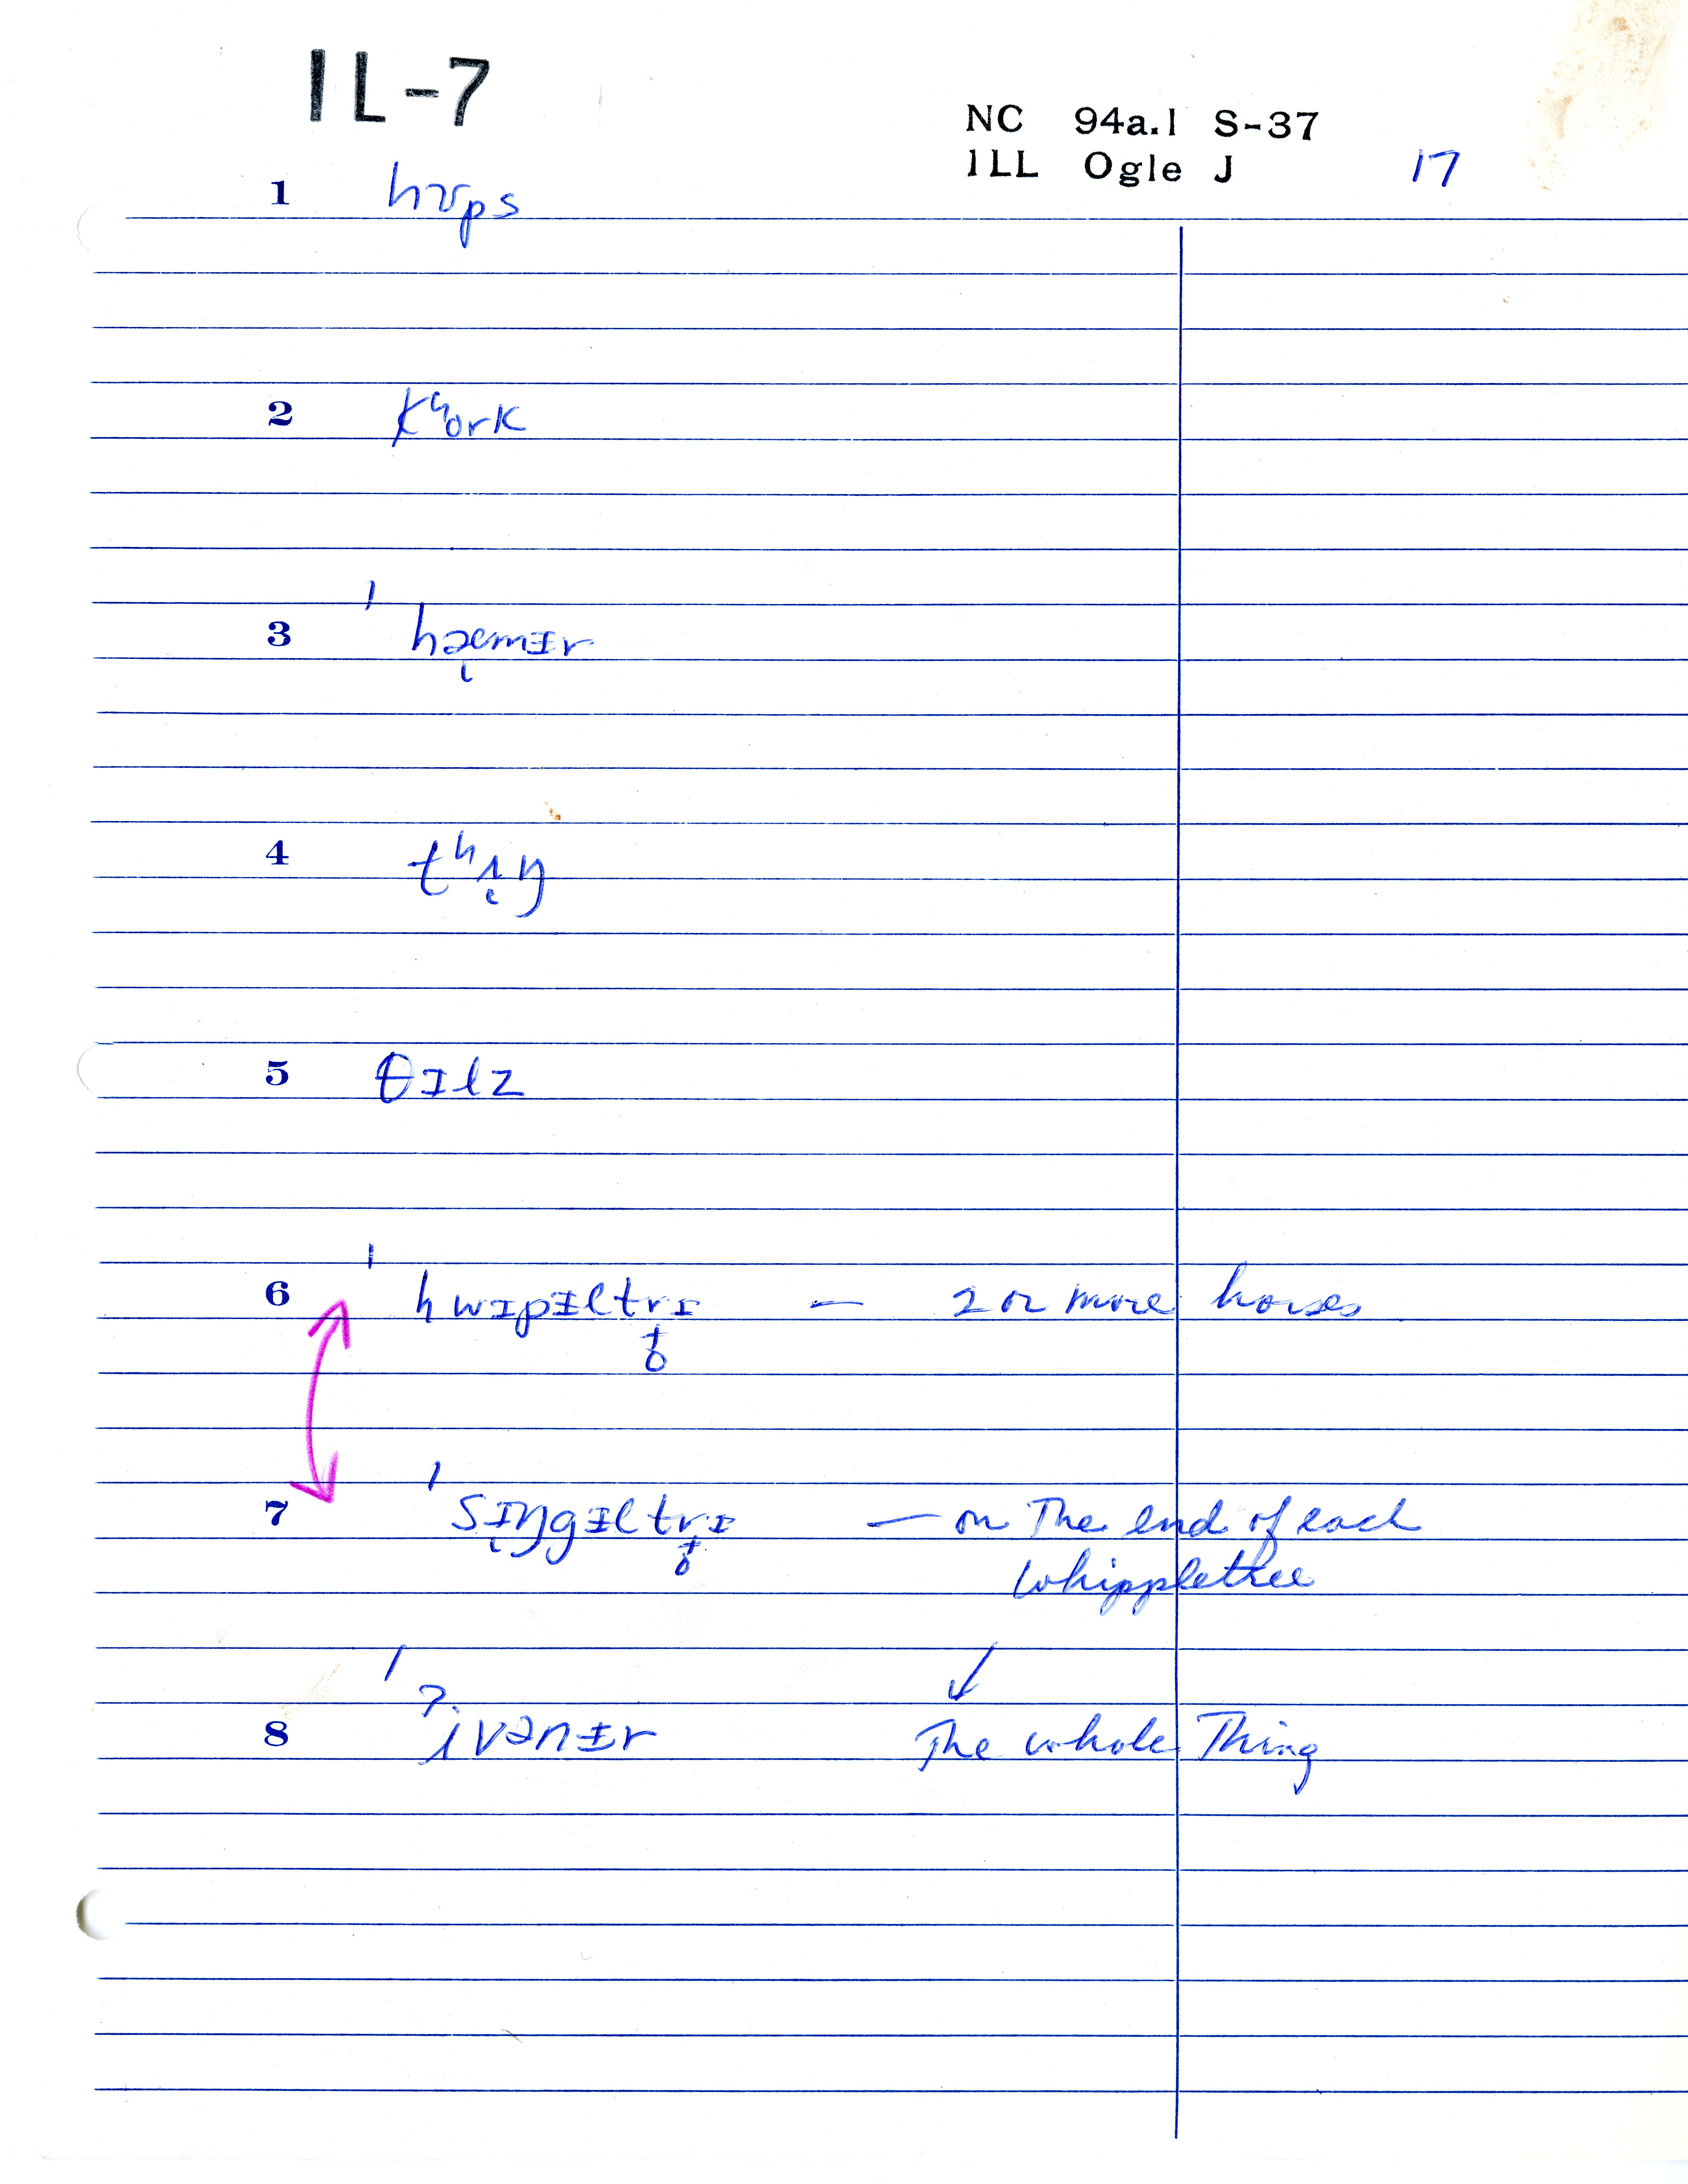 IL-7
NC 94a.1 S-37
ILL Ogle J 17
1 hʊps
2 kʰork
3 ˈhæmɪr
4 tʰɪŋ
5 θɪlz
6 ˈhwɪpɪltri — 2 or more horses
7 ˈsɪŋgɪltri — on The end of each
whippletree
8 ˈʔivənɪr ↓ The whole Thing